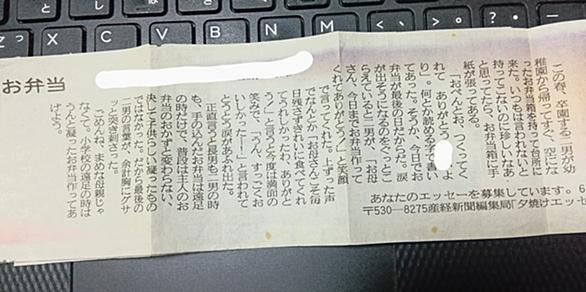 お弁当
この春、卒園する二男が幼
稚園から帰ってすぐ、空にな
ったお弁当箱を持って台所に
来た。いつもは言われないと
持ってこないのに珍しいなあ
と思ってたら、お弁当箱に手
紙が張ってある。
「おべんとお つくってく
れて ありがとう
り」。何とか読める字で書い
てあった。そうか、今日でお
弁当が最後の日だからだ。涙
が出そうになるのをぐっとこ
らえていると二男が、「お母
さん、今日までお弁当作って
くれてありがとう!」と笑顔
で言ってくれた。上ずった声
でなんとか「お母さんこそ毎
日残さずきれいに食べてくれ
てうれしかったわ、ありがと
う!」と言うと今度は満面の
笑みで、「うん、すっごくお
いしかったーー!」と言われて
とうとう涙があふれ出た。
正直言うと長男も二男の時
も、手のりこんだお弁当は遠足
の時だけで、普段は主人のお
弁当のおかずと変わらない、
決して子供らしい凝ったもの
ではなかった。だから最後の
二男の言葉が、余計胸にグサ
ッと突き刺さった。
ごめんね、まめな母親じゃ
なくて。小学校の遠足の時は
うんと凝ったお弁当作ってあ
げよう。
あなたのエッセーを募集しています。
〒530-8275産経新聞編集局「夕焼けエッセ
Z
X
C
V
B
N
M